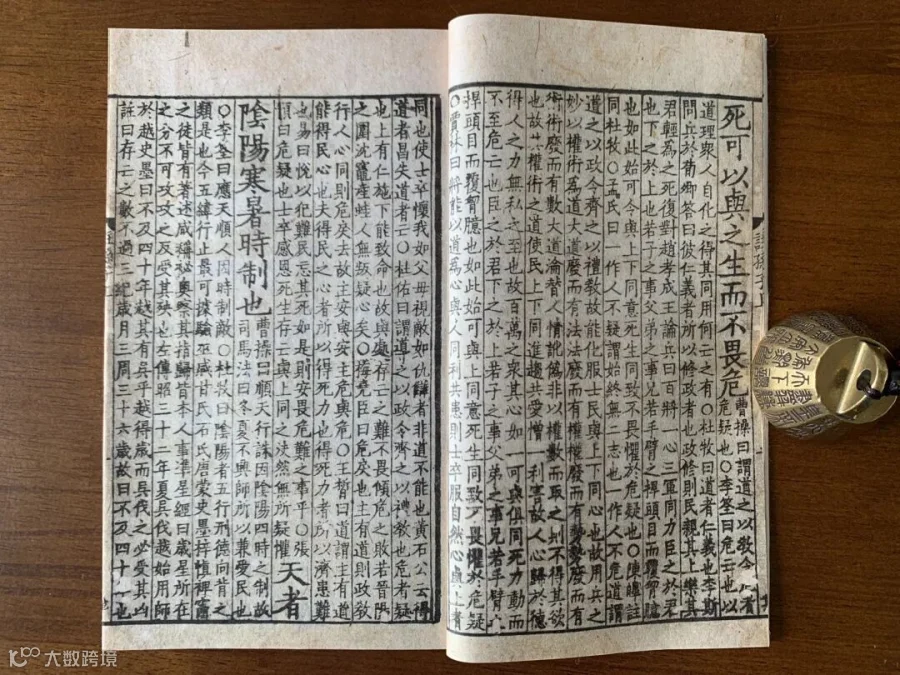 死可以與之生而不畏危曹操曰謂道之以教令
危疑也○李筌曰危亡也以
道理眾人自化之得其同用何亡之有○杜牧曰道者仁義也李斯
問兵於荀卿荅曰彼仁義者所以修政者也政修則民親其上樂其
君輕為之死復對趙孝成王論兵曰百將一心三軍同力臣之於君
也下之於上也若子之事父弟之事兄若手臂之捍頭目而覆胷臆
也如此始可令與上下同意死生同致不畏懼於危疑也○陳皥註
同杜牧○孟氏曰一作人不疑謂始終無二志也一作人不危道謂
道之以政令齊之以禮教故能化服士民與上下同心也故用兵之
妙以權術為道大道廢而有法法廢而有權權廢而有勢勢廢而有
術術廢而有數大道淪替人情訛偽非以權數而取之則不得其欲
也故其權術之道使民上下同進趨共愛憎一利害故人心歸於德
得人之力無私之至也故百萬之眾其心如一可與俱同死力動而
不至危亡也臣之於君下之於上若子之事父弟之事兄若手臂之
捍頭目而覆胷臆也如此始可與上同意死生同致不畏懼於危疑
○賈林曰將能以道為心與人同利共患則士卒服自然心與上者
同也使士卒懷我如父母視敵如仇讎者非道不能也黃石公云得
道者昌失道者亡○杜佑曰謂道之以政令齊之以禮教也危者疑
也上有仁施下能致命也故與處存亡之難不畏傾危之敗若晉陽
之圍沈竈產蛙人無叛疑心矣○梅堯臣曰危戾也主有道則政教
行人心同則危戾去故主安與安主危與危○王晳曰道謂主有道
能得民心也夫得民之心者所以得死力也得死力者所以濟患難
也易曰悅以犯難民忘其死如是則安畏危難之事乎○張
預曰危疑也士卒感恩死生存亡與上同之決然無所疑懼天者
陰陽寒暑時制也曹操曰順天行誅因陰陽四時之制故
司馬法曰冬夏不興師所以兼愛民也
○李筌曰應天順人因時制敵○杜牧曰陰陽者五行刑德向背之
類是也今五緯行止最可據驗巫咸甘氏石氏唐蒙史墨梓慎裨竈
之徒皆有著述咸稱祕奧察其指歸皆本人事準星經曰歲星所在
之分不可攻攻之反受其殃也左傳昭三十二年夏吳伐越始用師
於越史墨曰不及四十年越其有吳乎越得歲而吳伐之必受其凶
註曰存亡之數不過三紀歲月三周三十六歲故曰不及四十年也
大数跨境